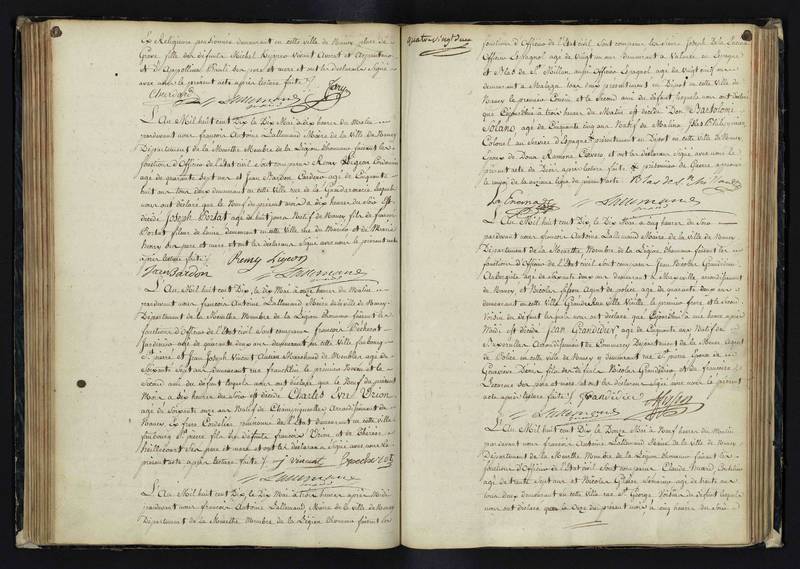 Ex Religieux pensionné demeurant en cette ville de Nancy place de
Grève fils des défunts Michel
et d'Appolline ses père et mère et ont les déclarans Signé
avec nous le présent acte après lecture faite /.
Lallemand
L'An Mil huit cent Dix le Dix Mai à dix heures du Matin
pardevant nous françois Antoine Lallemand Maire de la ville de Nancy
Département de la Meurthe Membre de la Légion d'honneur faisant les
fonctions d'Officier de l'Etat civil Sont comparus Remy Ligeon
âgé de quarante sept ans et Jean Bardon Cordier âgé de Cinquante
huit ans tous deux demeurant en cette ville rue de la Gendarmerie lesquels
nous ont déclaré que le Neuf du présent mois à dix heures du Soir Est
décédé Joseph Portat âgé de huit jours Natif de Nancy fils de
Portat fileur de laine demeurant en cette ville rue du et de Marie
Henry ses père et mère et ont les déclarans Signé avec nous le présent acte
après lecture faite /. Remy Ligeon
Jean Bardon Lallemand
L'An Mil huit cent Dix, le Dix Mai à onze heures du Matin
pardevant nous françois Antoine Lallemand Maire de la ville de Nancy
Département de la Meurthe Membre de la Légion d'honneur faisant les
fonctions d'Officier de l'Etat civil Sont comparus françois
Jardinier âgé de quarante deux ans demeurant en cette ville faubourg
St. pierre et Jean Joseph Vincent Ancien Marchand de Meubles âgé de
Soixante Sept ans demeurant rue le premier Neveu et le
Second ami du défunt lesquels nous ont déclaré que le Neuf du présent
Mois à dix heures du Soir est décédé Charles Evre Orion
âgé de Soixante onze ans Natif de Champigneulles Arrondissement de
Nancy Ex frère Cordelier pensionné de l'Etat demeurant en cette ville
faubourg St. pierre fils des défunts françois Orion et de Thérèse
ses père et mère et ont les déclarans Signé avec nous le
présent acte après lecture faite /. Vincent
Lallemand
L'An Mil huit cent Dix le Dix Mai à trois heures après Midi
pardevant nous françois Antoine Lallemand, Maire de la ville de Nancy
Département de la Meurthe Membre de la Légion d'honneur faisant les
quatre vingt deux
fonctions d'Officier de l'Etat civil Sont comparus les sieurs Joseph De la
Officier Espagnol âgé de vingt un ans demeurant à Valence en Espagne
et Blas de St. Millan aussi Officier Espagnol âgé de vingt ans
demeurant à Malaga tous deux présentement en Dépôt en cette ville de
Nancy le premier Cousin et le Second ami du défunt lesquels nous ont déclaré
que aujourd'hui à trois heures du Matin est décédé Don Bartolomé
Solano, âgé de Cinquante cinq ans Natif de
Colonel au Service d'Espagne présentement en Dépôt en cette ville de Nancy
Epoux de Dona Ramona et ont les déclarans Signé avec nous le
présent acte de Décès après lecture faite /. prisonnier de Guerre approuvé
le renvoi de la onzième ligne du présent acte. Blas de St. Millan
Lallemand
L'An Mil huit cent Dix, le Dix Mai à cinq heures du Soir
pardevant nous françois Antoine Lallemand Maire de la ville de Nancy
Département de la Meurthe, Membre de la Légion d'honneur faisant les
fonctions d'Officier de l'Etat civil Sont comparus Jean Nicolas
Aubergiste âgé de Soixante deux ans demeurant à arrondissement
de Nancy et Nicolas Agent de police, âgé de quarante deux ans
demeurant en cette ville Grande rue Ville Vieille le premier frère et le Second
Voisin du défunt lesquels nous ont déclaré que aujourd'hui à une heure après
Midi est décédé Jean âgé de Cinquante ans Natif de
Arrondissement de Commercy Département de la Meuse Agent
de Police en cette ville de Nancy y demeurant rue St. pierre Epoux de
Geneviève fils des défunts Nicolas et de françoise
ses père et mère et ont les déclarans Signé avec nous le présent
acte après lecture faite /.
Lallemand
L'An Mil huit cent Dix le Onze Mai à Neuf heures du Matin
pardevant nous françois Antoine Lallemand Maire de la ville de Nancy
Département de la Meurthe Membre de la Légion d'honneur faisant les
fonctions d'Officier de l'Etat civil Sont comparus Claude
âgé de trente Sept ans et Nicolas âgé de trente ans
tous deux demeurant en cette ville rue St. George Voisins du défunt lesquels
nous ont déclaré que le Onze du présent mois à cinq heures du